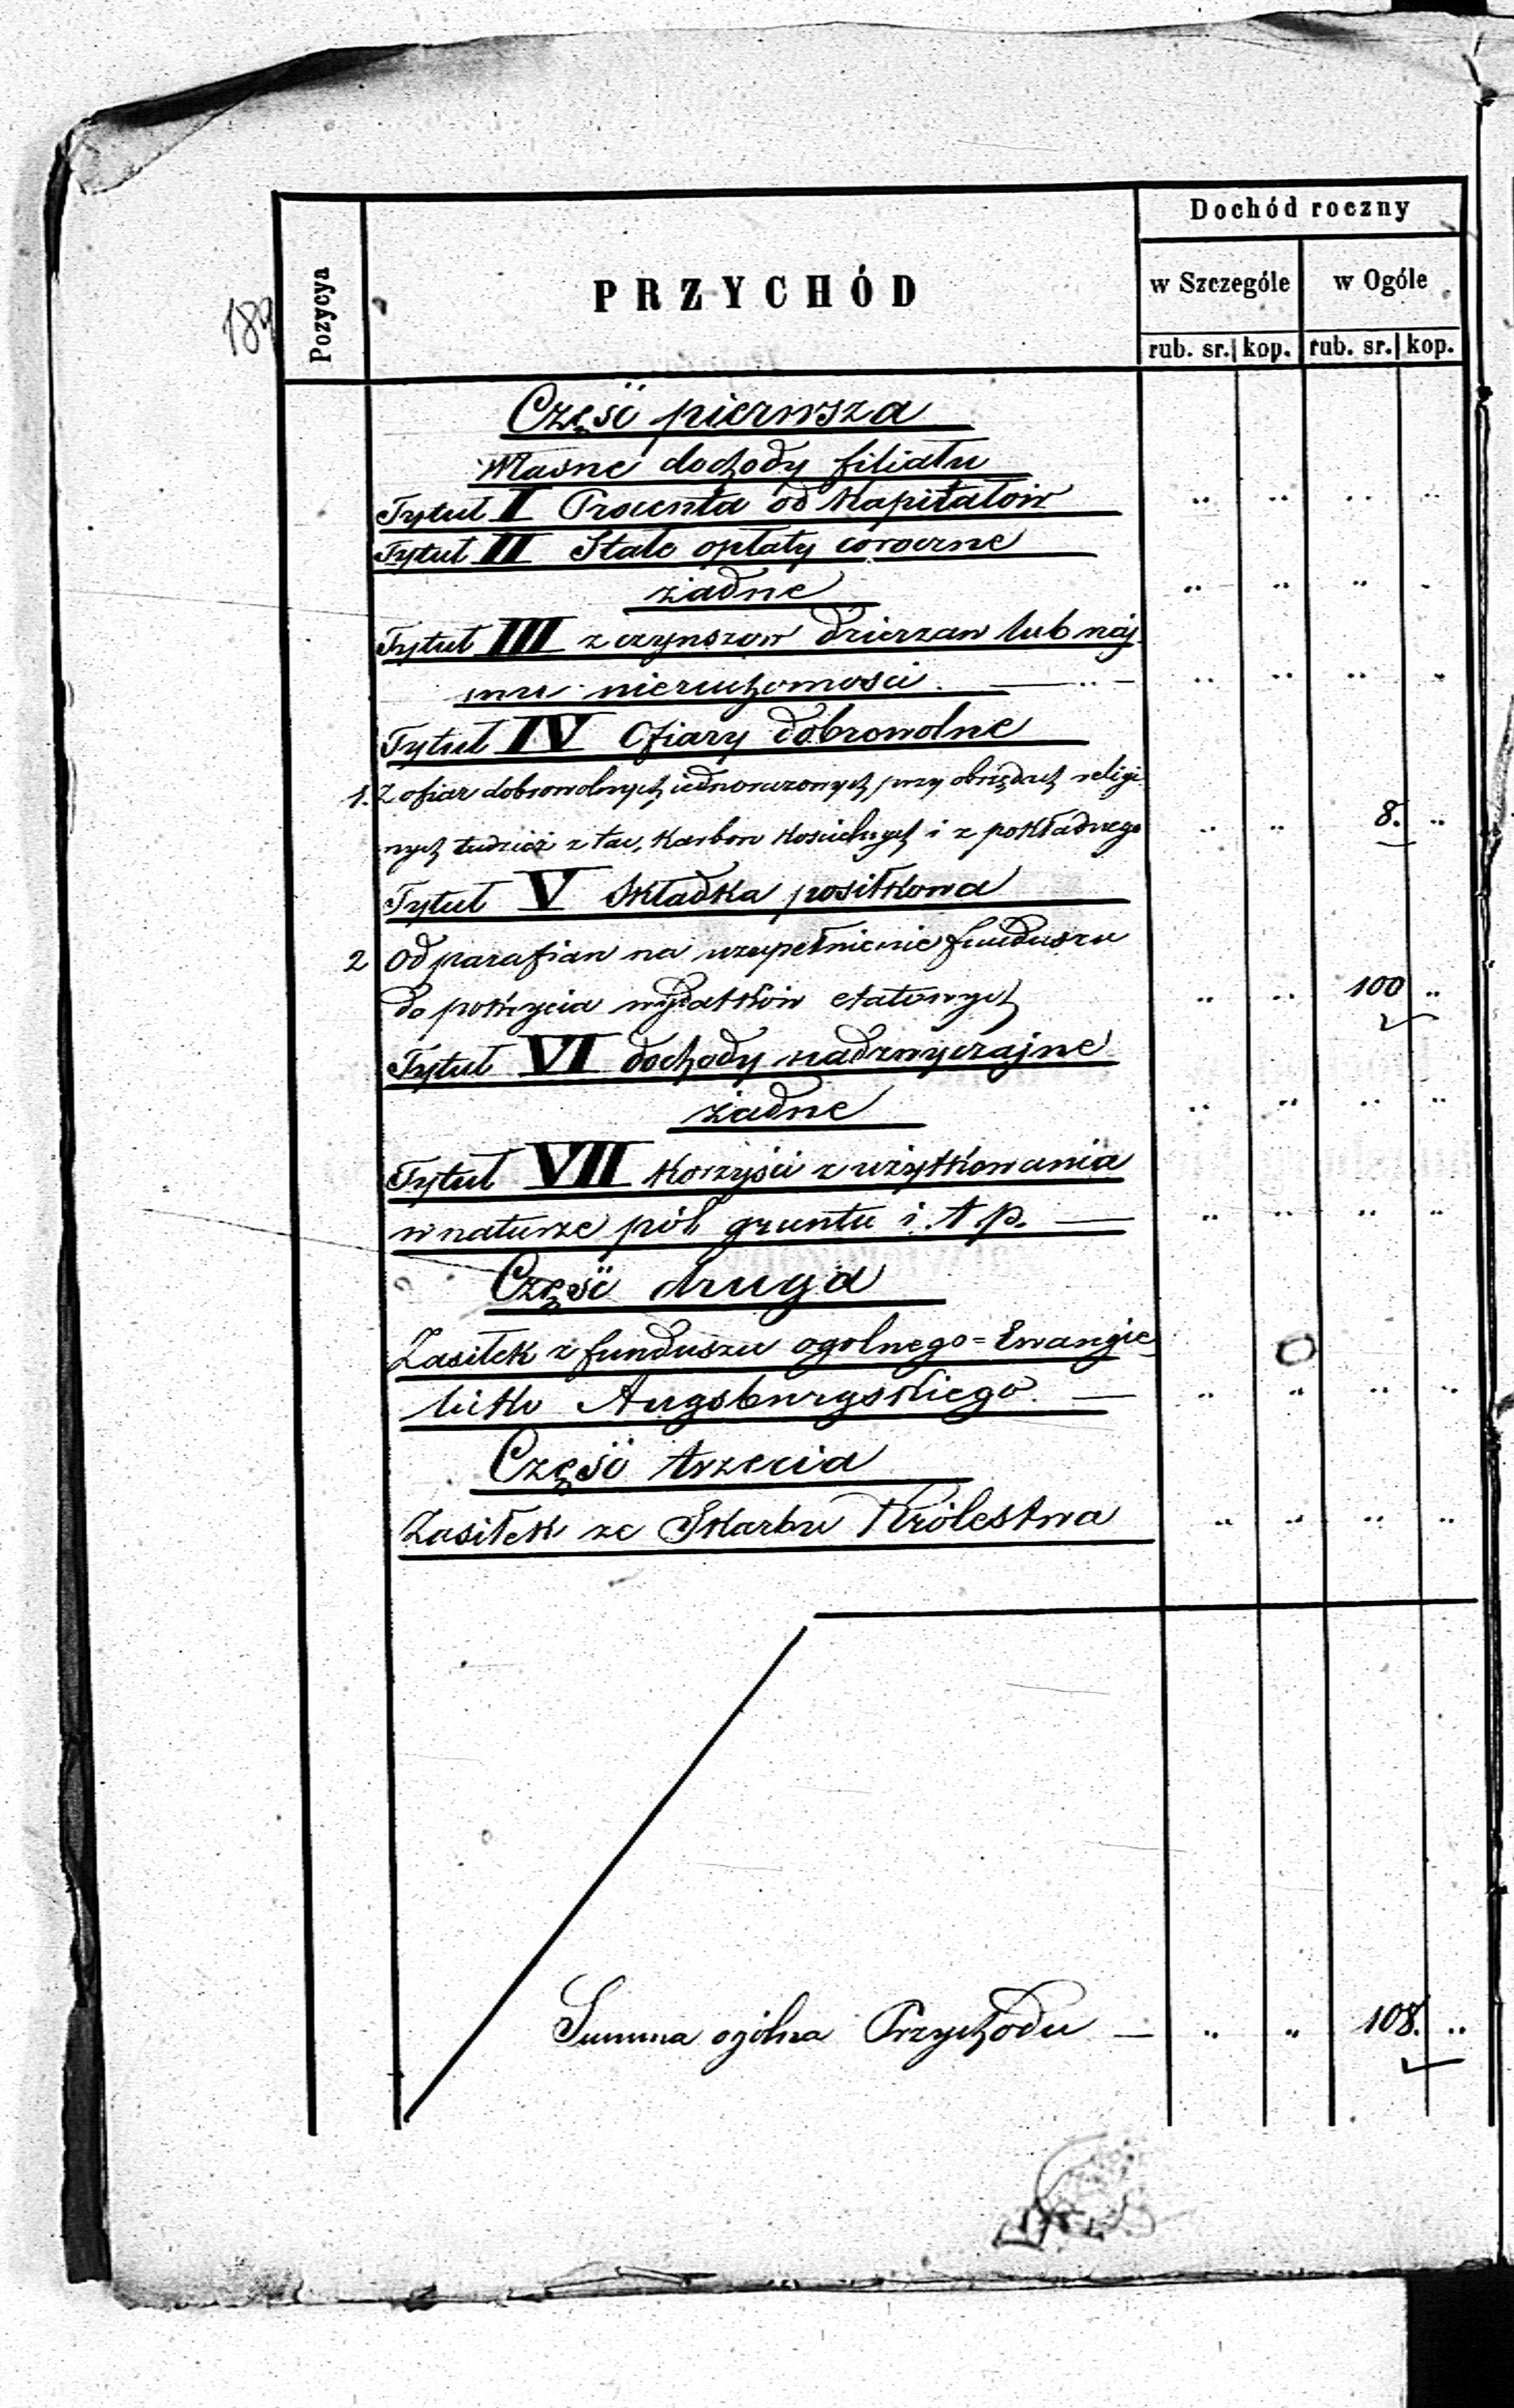 Dochód roczny
Pozycya
PRZYCHÓD
w Szczególe
w Ogóle
rub. sr. kop. rub. sr. kop.
Część pierwsza
Własne dochody filiału
Tytuł I Procenta od Kapitałów " " " "
Tytuł II Stałe opłaty coroczne
żadne " " " "
Tytuł III z czynszow dzierzaw lub naj-
mu nieruchomości. — " — " " " "
Tytuł IV Ofiary dobrowolne
1. Z ofiar dobrowolnych jednorazowych, przy obrzędach religij
nych tudzież z tac, Karbon Kościelnych i z pokładnego " " 8. "
Tytuł V Składka posiłkowa
2 Od parafian na uzupełnienie funduszu
do pokrycia wydatków etatowych " " 100 "
Tytuł VI dochody nadzwyczajne
żadne " " " "
Tytuł VII Korzyści z użytkowania
w naturze pól gruntu i. t. p. — " " " "
Część druga
Zasiłek z funduszu ogolnego = Ewangie
licko Augsburgskiego. — " " " "
Część trzecia
Zasiłek ze Skarbu Królestwa " " " "
Summa ogólna Przychodu — " " 108. "